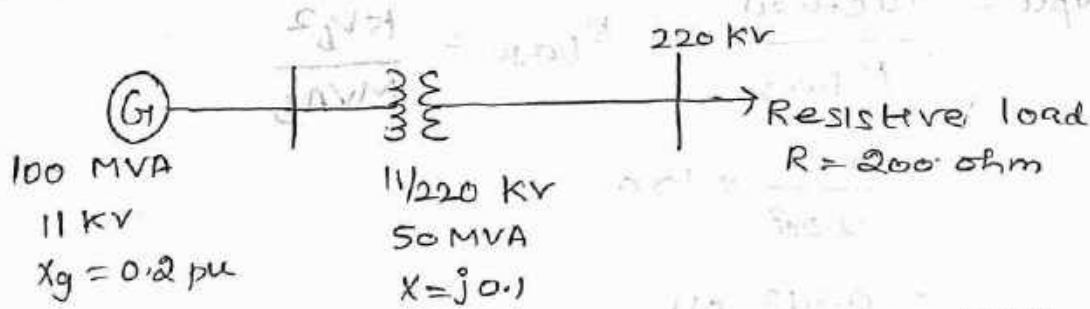 220 KV
G
Resistive load
R = 200 ohm
100 MVA
11 KV
Xg = 0.2 pu
11/220 KV
50 MVA
X = j0.1